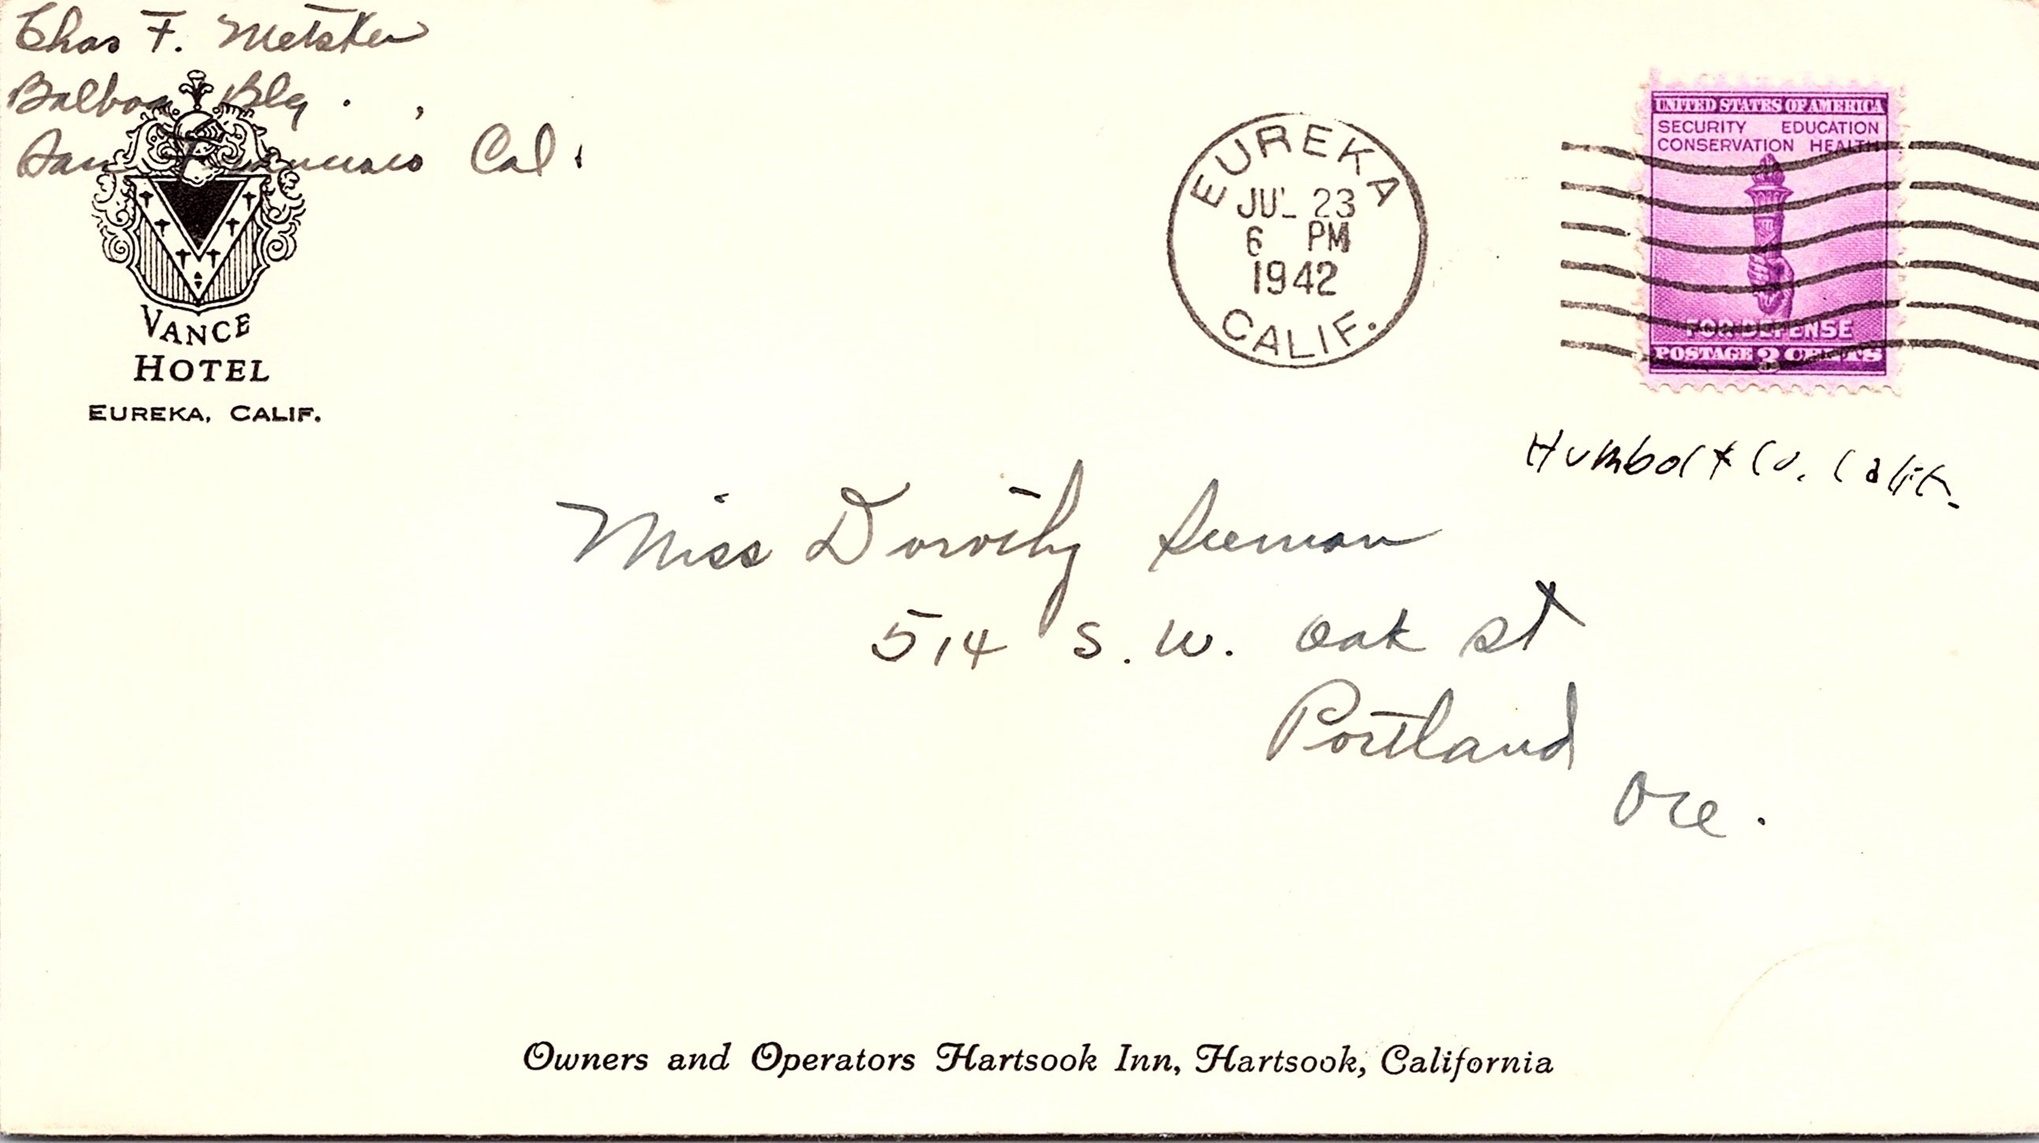 Chas F. Metsker
Balboa Blg.,
San Francisco Cal.
VANCE
HOTEL
EUREKA, CALIF.
EUREKA
JUL 23
6 PM
1942
CALIF.
UNITED STATES OF AMERICA
SECURITY EDUCATION
CONSERVATION HEALTH
FOR DEFENSE
POSTAGE 3 CENTS
Humbolt Co. Calif.
Miss Dorothy Seeman
514 S.W. Oak St
Portland
Ore.
Owners and Operators Hartsook Inn, Hartsook, California